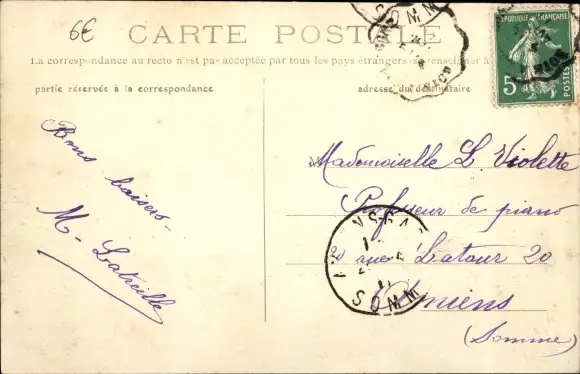 6€
CARTE POSTALE
La correspondance au recto n'est pas acceptée par tous les pays étrangers
partie réservée à la correspondance
adresse du destinataire
RÉPUBLIQUE FRANÇAISE
5
Bons baisers-
M. Latreille
Mademoiselle L. Violette
Professeur de piano
20 rue Latour 20
Amiens
(Somme)
SOMM